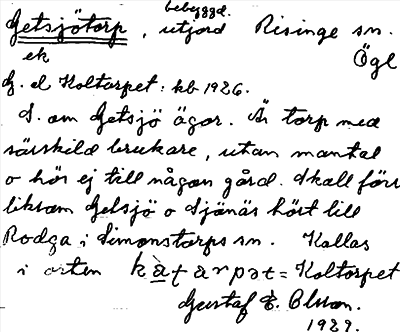 bebyggd.
Getsjötorp, utjord Risinge sn.
ek Ögl
G. el Koltorpet: kb 1926.
S. om Getsjö ägor. Är torp med
särskild brukare, utan mantal
o hör ej till någon gård. Skall förr
liksom Getsjö o Sjönäs hört till
Rodga i Simonstorps sn. Kallas
i orten kàṭarpət = Koltorpet
Gustaf E. Olsson.
1929.